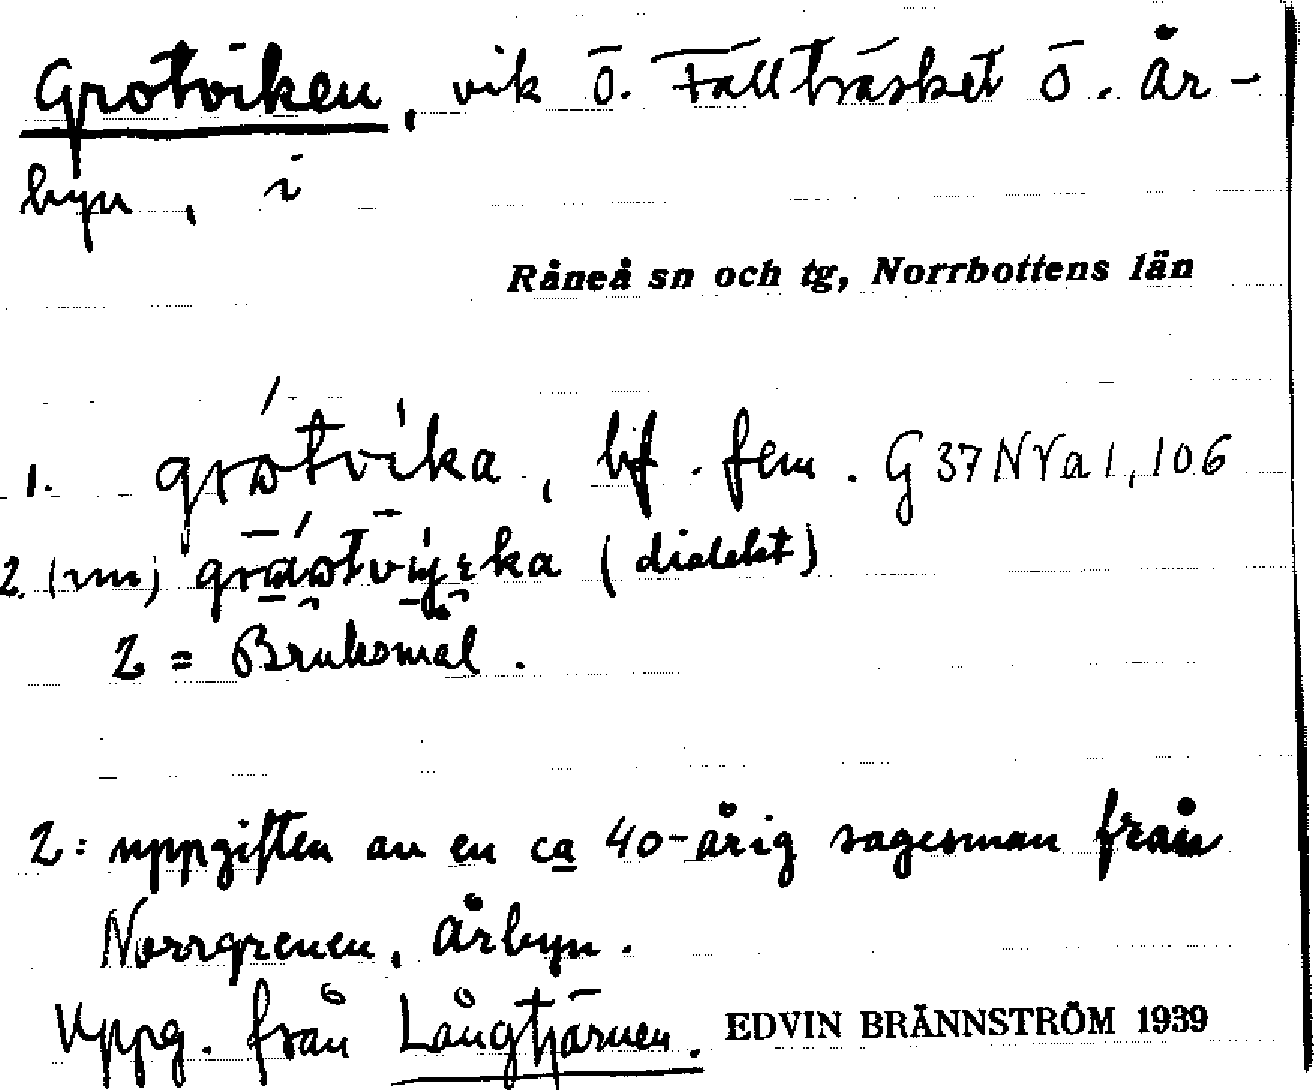 Grötviken, vik ö. Fällträsket ö. År-
byn, i
Råneå sn och tg, Norrbottens län
1. grötvika, bf. fem. G 37 N V a 1, 106
2. (dialekt)
2 = Bruksmål.
2: uppgiften av en ca 40-årig sagesman från
Norrgrenen, Årbyn.
Uppg. från Långtjärnen. EDVIN BRÄNNSTRÖM 1939